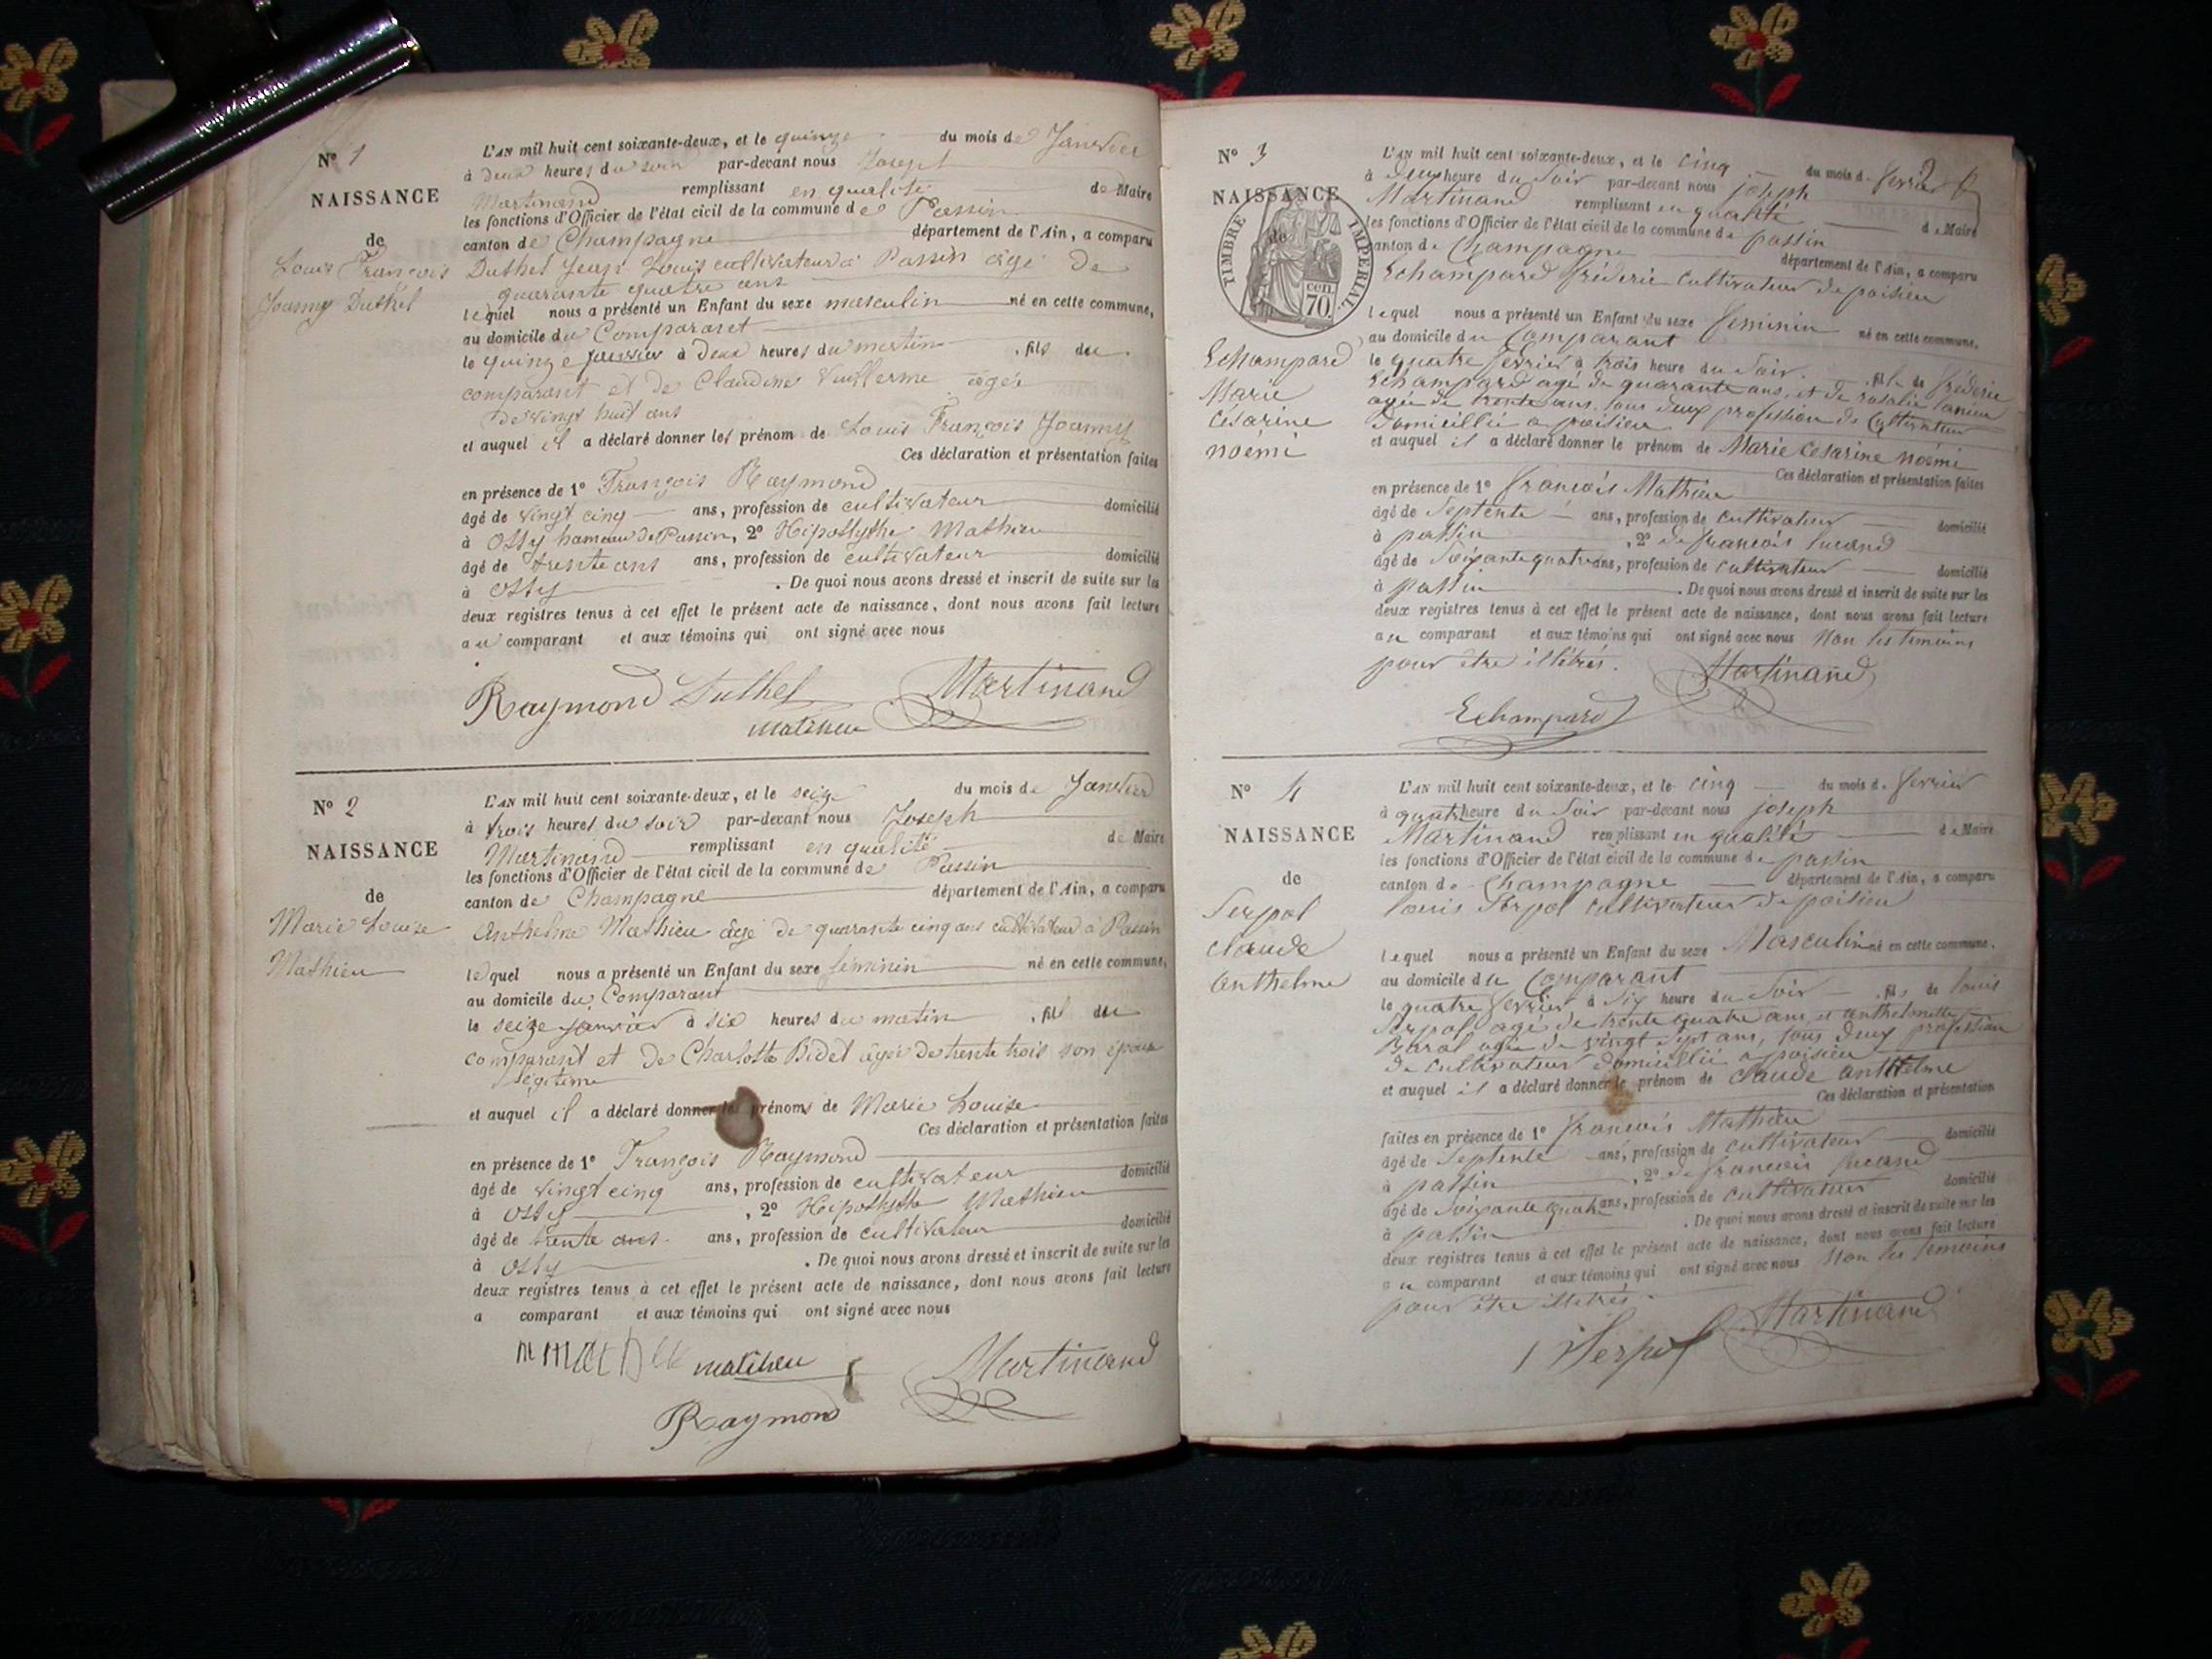 Nº 1
NAISSANCE
de
Louis François
Joanny Duthel
L'AN mil huit cent soixante-deux, et le quinze du mois de Janvier
à deux heures du soir par-devant nous Joseph
Martinand remplissant en qualité de Maire
les fonctions d'Officier de l'état civil de la commune de Passin
canton de Champagne département de l'Ain, a comparu
Duthel Jean Louis cultivateur à Passin âgé de
quarante quatre ans
lequel nous a présenté un Enfant du sexe masculin né en cette commune,
au domicile du Comparant
le quinze janvier à deux heures du matin, fils du
comparant et de Claudine Vuillerme âgée
de vingt huit ans
et auquel il a déclaré donner les prénom de Louis François Joanny
Ces déclaration et présentation faites
en présence de 1º François Raymond
âgé de vingt cinq ans, profession de cultivateur domicilié
à Ossy hameau de Passin, 2º Hipollythe Mathieu
âgé de trente ans ans, profession de cultivateur domicilié
à Ossy . De quoi nous avons dressé et inscrit de suite sur les
deux registres tenus à cet effet le présent acte de naissance, dont nous avons fait lecture
au comparant et aux témoins qui ont signé avec nous
Raymond Duthel Martinand
mathieu
Nº 2
NAISSANCE
de
Marie Louise
Mathieu
L'AN mil huit cent soixante-deux, et le seize du mois de Janvier
à trois heures du soir par-devant nous Joseph
Martinand remplissant en qualité de Maire
les fonctions d'Officier de l'état civil de la commune de Passin
canton de Champagne département de l'Ain, a comparu
Anthelme Mathieu âgé de quarante cinq ans cultivateur à Passin
lequel nous a présenté un Enfant du sexe féminin né en cette commune,
au domicile du Comparant
le seize janvier à six heures du matin, fil du
comparant et de Charlotte Bidet âgée de trente trois son épouse
légitime
et auquel il a déclaré donner les prénoms de Marie Louise
Ces déclaration et présentation faites
en présence de 1º François Raymond
âgé de vingt cinq ans, profession de cultivateur domicilié
à Ossy , 2º Hipollythe Mathieu
âgé de trente ans ans, profession de cultivateur domicilié
à Ossy . De quoi nous avons dressé et inscrit de suite sur les
deux registres tenus à cet effet le présent acte de naissance, dont nous avons fait lecture
a comparant et aux témoins qui ont signé avec nous
mathieu Martinand
Raymond
Nº 3
NAISSANCE
de
TIMBRE IMPERIAL
70 cen.
Echampard
Marie
Césarine
noémi
L'AN mil huit cent soixante-deux, et le cinq du mois de fevrier
à deux heure du Soir par-devant nous joseph
Martinand remplissant en qualité de Maire
les fonctions d'Officier de l'état civil de la commune de passin
canton de Champagne département de l'Ain, a comparu
Echampard fréderic Cultivateur de poisieu
lequel nous a présenté un Enfant du sexe feminin né en cette commune,
au domicile du Comparant
le quatre fevrier à trois heure du Soir, fille de fréderic
Echampard agé de quarante ans, et de rosalie
agée de trente ans, tous deux profession de Cultivateur
domicillié a poisieu
et auquel il a déclaré donner le prénom de Marie Césarine noémi
Ces déclaration et présentation faites
en présence de 1º francois Mathieu
âgé de Septente ans, profession de Cultivateur domicilié
à passin , 2º de francois
âgé de Soixante quatre ans, profession de Cultivateur domicilié
à passin . De quoi nous avons dressé et inscrit de suite sur les
deux registres tenus à cet effet le présent acte de naissance, dont nous avons fait lecture
au comparant et aux témoins qui ont signé avec nous Non les temoins
pour être illétrés. Martinand
Echampard
Nº 4
NAISSANCE
de
Serpol
claude
anthelme
L'AN mil huit cent soixante-deux, et le cinq du mois de fevrier
à quatre heure du Soir par-devant nous joseph
Martinand remplissant en qualité de Maire
les fonctions d'Officier de l'état civil de la commune de passin
canton de Champagne département de l'Ain, a comparu
louis Serpol Cultivateur de poisieu
lequel nous a présenté un Enfant du sexe Masculin né en cette commune,
au domicile du Comparant
le quatre fevrier à Six heure du Soir, fils de louis
Serpol agé de trente quatre ans, et
agée de vingt Sept ans, tous deux profession
de Cultivateur domicillié a poisieu
et auquel il a déclaré donner le prénom de claude anthelme
Ces déclaration et présentation
faites en présence de 1º francois Mathieu
âgé de Septente ans, profession de Cultivateur domicilié
à passin , 2º de francois
âgé de Soixante quatre ans, profession de Cultivateur domicilié
à passin . De quoi nous avons dressé et inscrit de suite sur les
deux registres tenus à cet effet le présent acte de naissance, dont nous avons fait lecture
au comparant et aux témoins qui ont signé avec nous Non les temoins
pour être illetrés. Martinand
Serpol